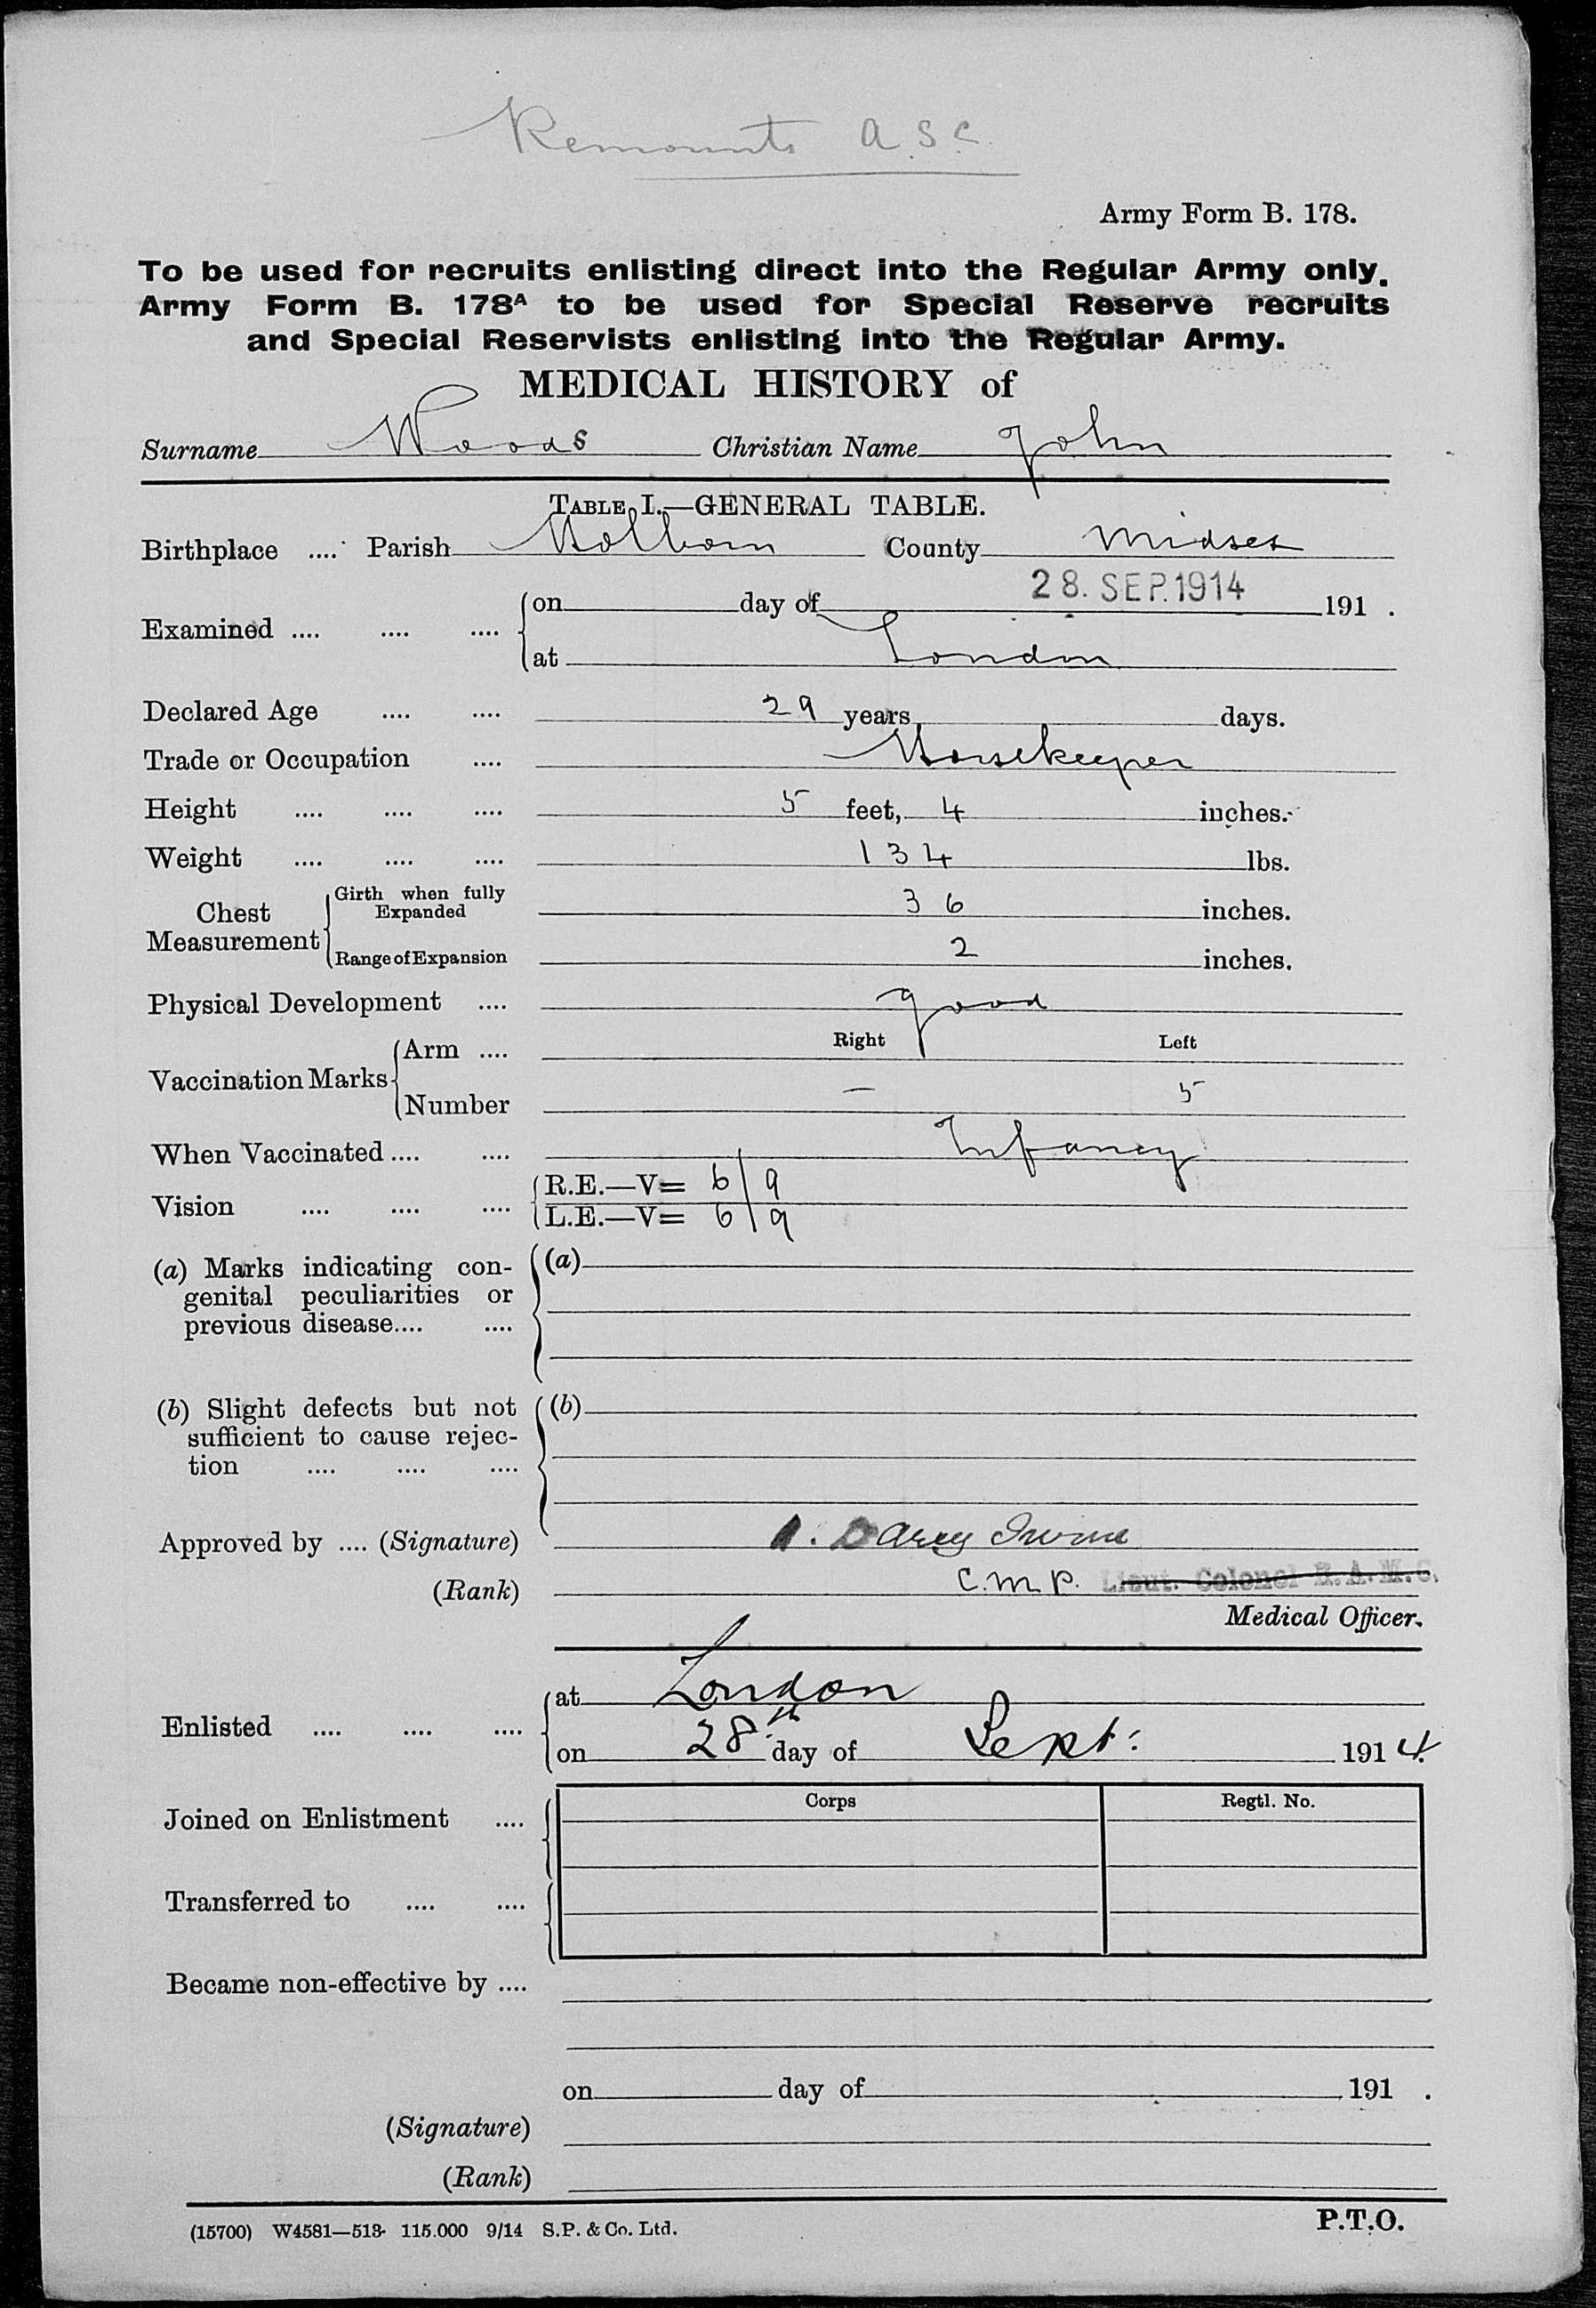 Remounts A.S.C.
Army Form B. 178.
To be used for recruits enlisting direct into the Regular Army only.
Army Form B. 178A to be used for Special Reserve recruits
and Special Reservists enlisting into the Regular Army.
MEDICAL HISTORY of
Surname Woods Christian Name John
TABLE I.—GENERAL TABLE.
Birthplace .... Parish Holborn County Midsex
Examined .... .... .... on day of 28. SEP. 1914 191 .
at London
Declared Age .... .... 29 years days.
Trade or Occupation .... Horsekeeper
Height .... .... .... 5 feet, 4 inches.
Weight .... .... .... 134 lbs.
Chest Measurement Girth when fully Expanded 36 inches.
Range of Expansion 2 inches.
Physical Development .... good
Vaccination Marks Arm .... Right Left
Number — 5
When Vaccinated .... .... Infancy
Vision .... .... .... R.E.—V= 6/9
L.E.—V= 6/9
(a) Marks indicating con- (a)
genital peculiarities or
previous disease.... ....
(b) Slight defects but not (b)
sufficient to cause rejec-
tion .... .... ....
Approved by .... (Signature) A. Darcy Irvine
(Rank) C.M.P. Lieut. Colonel R.A.M.C.
Medical Officer.
Enlisted .... .... .... at London
on 28th day of Sept: 1914
Corps Regtl. No.
Joined on Enlistment ....
Transferred to .... ....
Became non-effective by ....
on day of 191 .
(Signature)
(Rank)
(15700) W4581—518- 115.000 9/14 S.P. & Co. Ltd.
P.T.O.